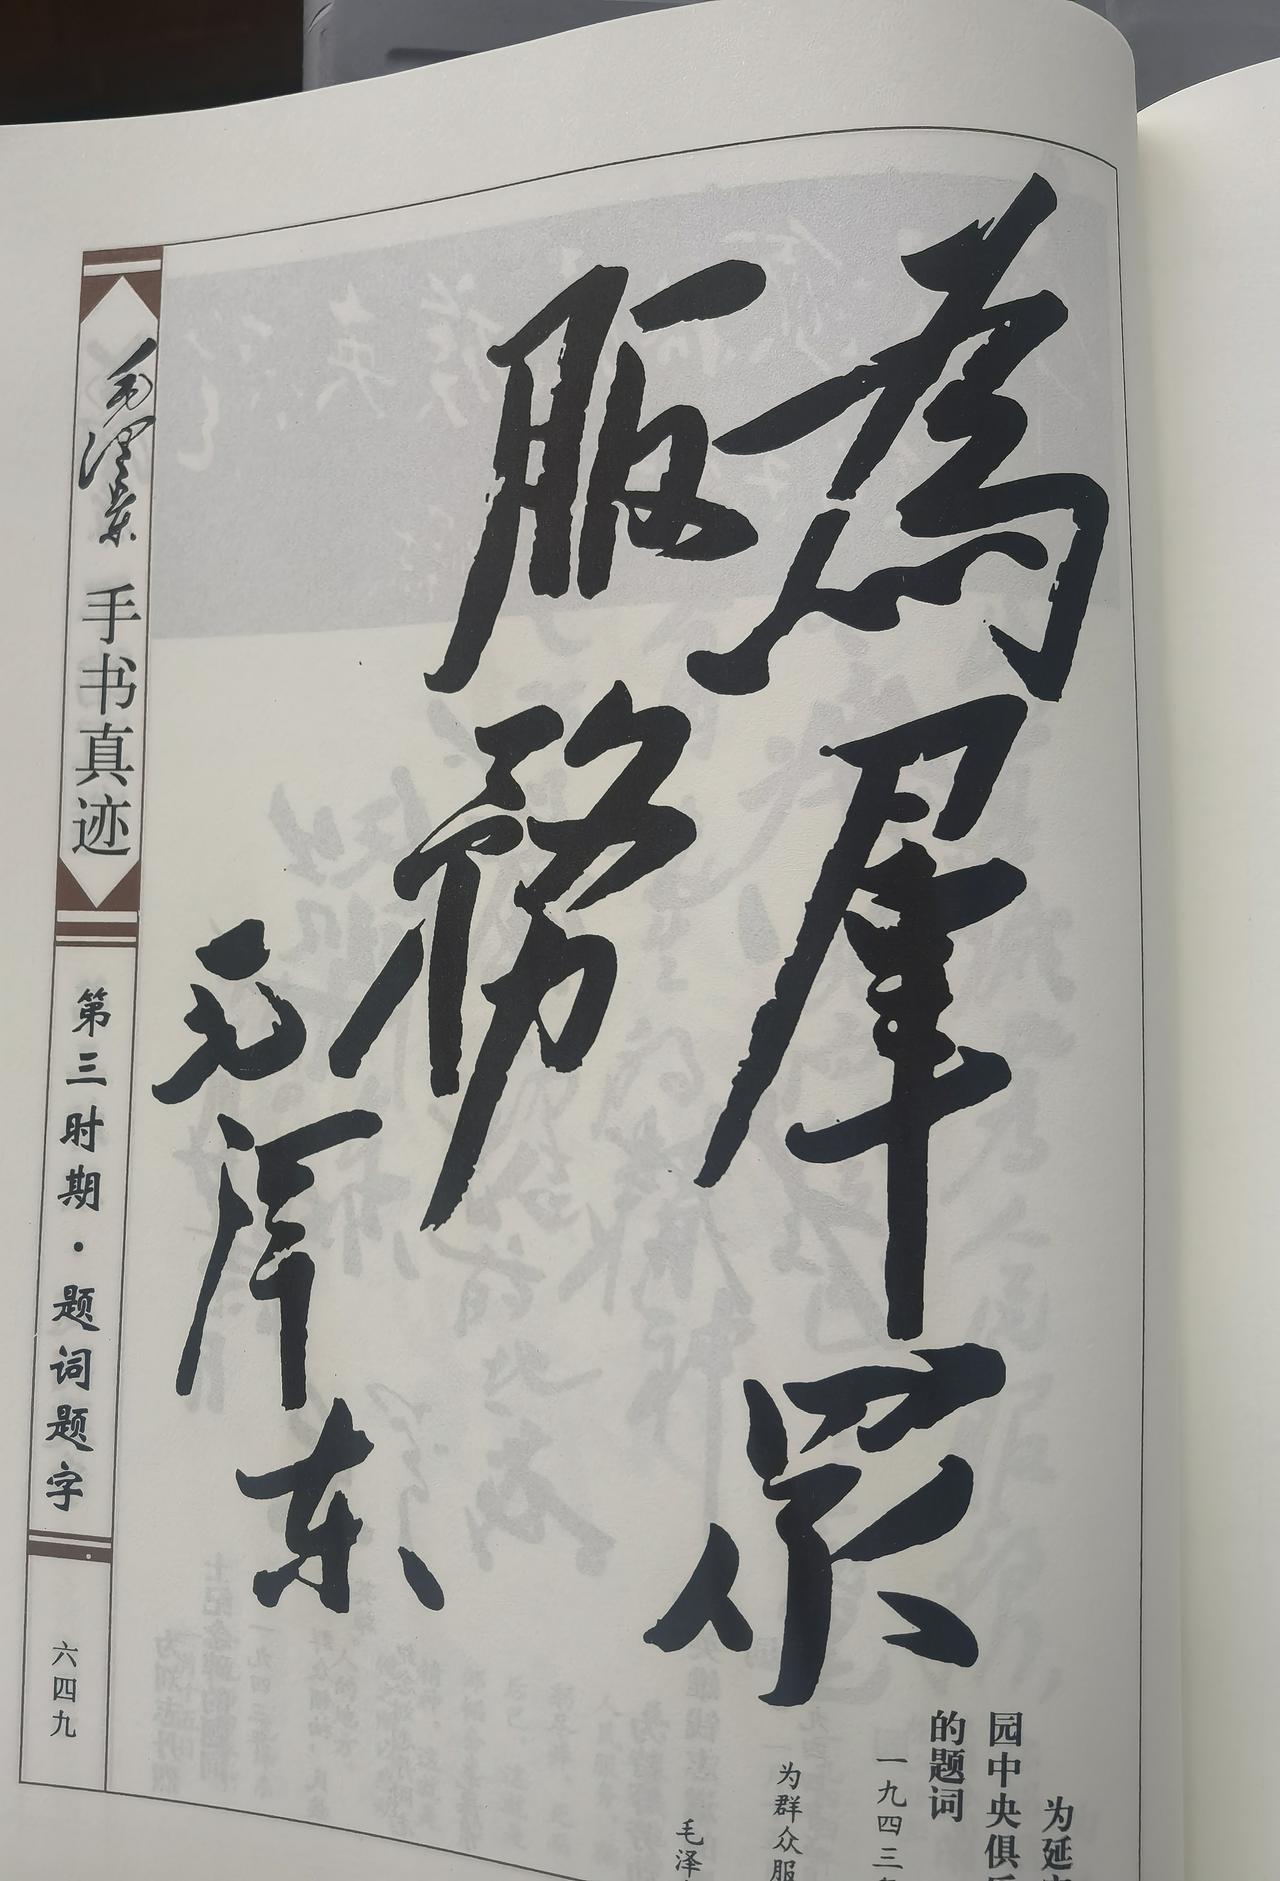 為羣眾
服務
毛泽东
为延
园中央俱
的题词
一九四三
为群众服
毛泽
毛泽东手书真迹
第三时期·题词题字
六四九